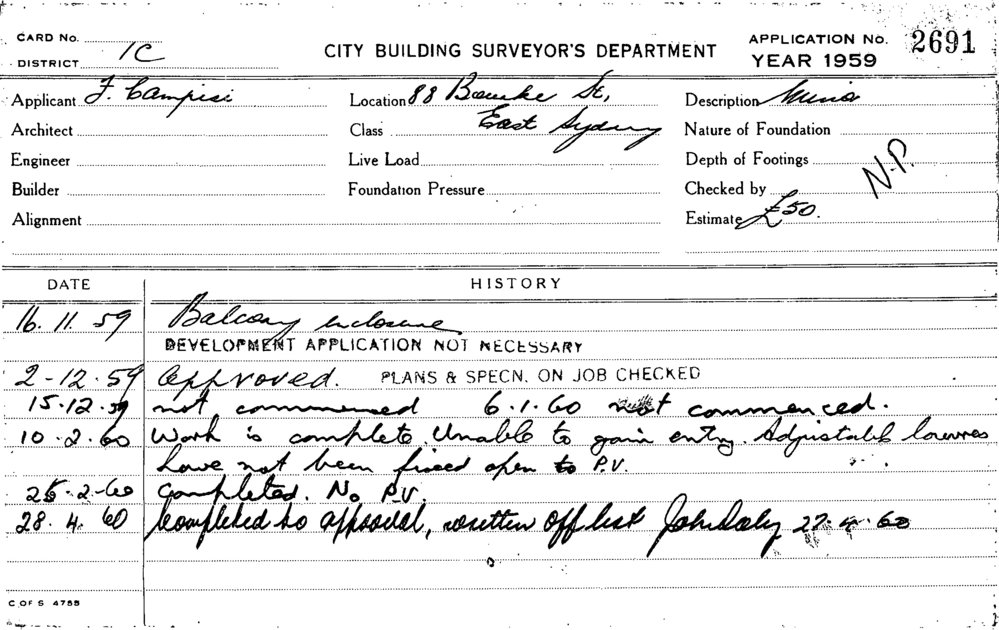 CARD No.
DISTRICT 1C
CITY BUILDING SURVEYOR'S DEPARTMENT
APPLICATION No. 2691
YEAR 1959
Applicant F. Campisi
Location 88 Bourke St,
Description Minor
Architect
Class East Sydney
Nature of Foundation
Engineer
Live Load
Depth of Footings
N.P.
Builder
Foundation Pressure
Checked by
Alignment
Estimate £50.
DATE HISTORY
16. 11. 59 Balcony enclosure
DEVELOPMENT APPLICATION NOT NECESSARY
2-12.59 Approved. PLANS & SPECN. ON JOB CHECKED
15.12.59 not commenced 6.1.60 not commenced.
10.2.60 Work is complete. Unable to gain entry. Adjustable louvres
have not been fixed open to P.V.
25.2-60 Completed. No P.V.
28.4.60 Completed to approval, written off list John Daly 27.4.60
C OF S 4755